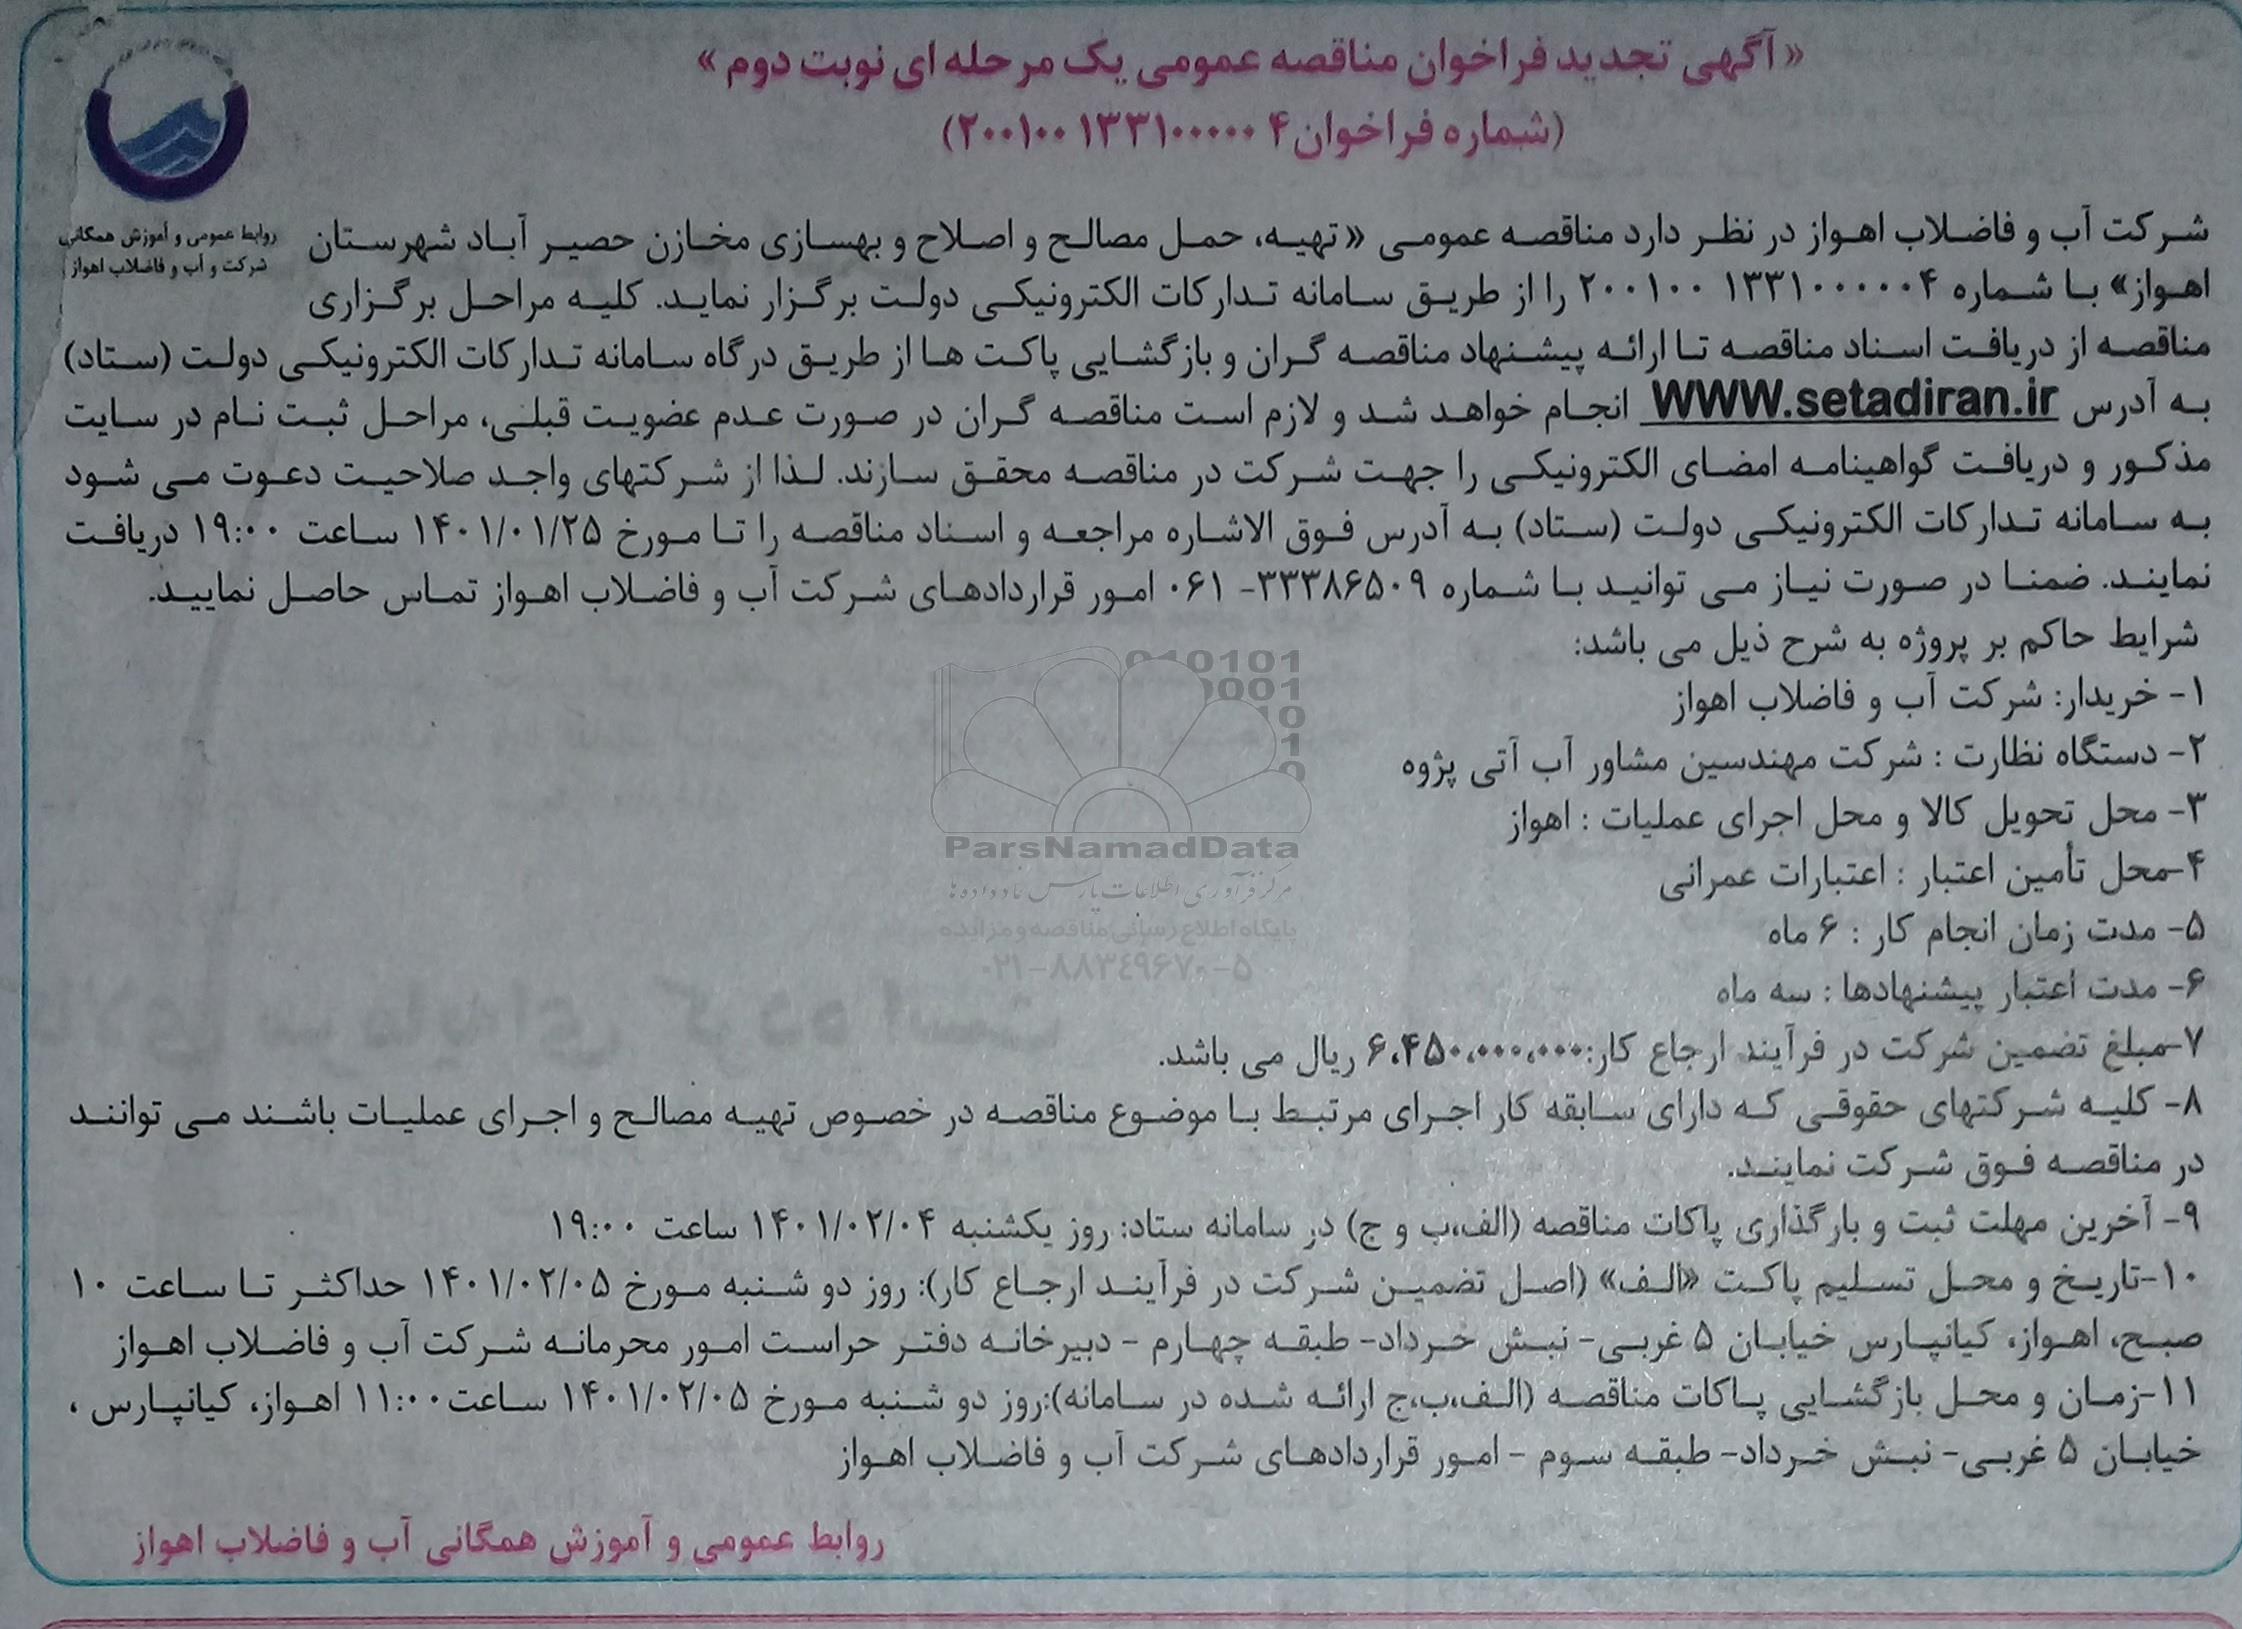 « آگهی تجدید فراخوان مناقصه عمومی یک مرحله ای نوبت دوم »
(شماره فراخوان۴ ۱۳۳۱۰۰۰۰۰ ۲۰۰۱۰۰)
روابط عمومی و آموزش همگانی
شرکت و آب و فاضلاب اهواز
شرکت آب و فاضلاب اهواز در نظر دارد مناقصه عمومی « تهیه، حمل مصالح و اصلاح و بهسازی مخازن حصیر آباد شهرستان
اهواز» با شماره ۲۰۰۱۰۰ ۱۳۳۱۰۰۰۰۰۴ را از طریق سامانه تدارکات الکترونیکی دولت برگزار نماید. کلیه مراحل برگزاری
مناقصه از دریافت اسناد مناقصه تا ارائه پیشنهاد مناقصه گران و بازگشایی پاکت ها از طریق درگاه سامانه تدارکات الکترونیکی دولت (ستاد)
به آدرس WWW.setadiran.ir انجام خواهد شد و لازم است مناقصه گران در صورت عدم عضویت قبلی، مراحل ثبت نام در سایت
مذکور و دریافت گواهینامه امضای الکترونیکی را جهت شرکت در مناقصه محقق سازند. لذا از شرکتهای واجد صلاحیت دعوت می شود
به سامانه تدارکات الکترونیکی دولت (ستاد) به آدرس فوق الاشاره مراجعه و اسناد مناقصه را تا مورخ ۱۴۰۱/۰۱/۲۵ ساعت ۱۹:۰۰ دریافت
نمایند. ضمنا در صورت نیاز می توانید با شماره ۳۳۳۸۶۵۰۹- ۰۶۱ امور قراردادهای شرکت آب و فاضلاب اهواز تماس حاصل نمایید.
شرایط حاکم بر پروژه به شرح ذیل می باشد:
۱- خریدار: شرکت آب و فاضلاب اهواز
۲- دستگاه نظارت : شرکت مهندسین مشاور آب آتی پژوه
۳- محل تحویل کالا و محل اجرای عملیات : اهواز
۴-محل تأمین اعتبار : اعتبارات عمرانی
۵- مدت زمان انجام کار : ۶ ماه
۶- مدت اعتبار پیشنهادها : سه ماه
۷-مبلغ تضمین شرکت در فرآیند ارجاع کار:۶،۴۵۰،۰۰۰،۰۰۰ ریال می باشد.
۸- کلیه شرکتهای حقوقی که دارای سابقه کار اجرای مرتبط با موضوع مناقصه در خصوص تهیه مصالح و اجرای عملیات باشند می توانند
در مناقصه فوق شرکت نمایند.
۹- آخرین مهلت ثبت و بارگذاری پاکات مناقصه (الف،ب و ج) در سامانه ستاد: روز یکشنبه ۱۴۰۱/۰۲/۰۴ ساعت ۱۹:۰۰
۱۰-تاریخ و محل تسلیم پاکت «الف» (اصل تضمین شرکت در فرآیند ارجاع کار): روز دو شنبه مورخ ۱۴۰۱/۰۲/۰۵ حداکثر تا ساعت ۱۰
صبح، اهواز، کیانپارس خیابان ۵ غربی- نبش خرداد- طبقه چهارم - دبیرخانه دفتر حراست امور محرمانه شرکت آب و فاضلاب اهواز
۱۱-زمان و محل بازگشایی پاکات مناقصه (الف،ب،ج ارائه شده در سامانه):روز دو شنبه مورخ ۱۴۰۱/۰۲/۰۵ ساعت۱۱:۰۰ اهواز، کیانپارس ،
خیابان ۵ غربی- نبش خرداد- طبقه سوم - امور قراردادهای شرکت آب و فاضلاب اهواز
روابط عمومی و آموزش همگانی آب و فاضلاب اهواز
ParsNamadData
مرکز فرآوری اطلاعات پارس نماد داده ها
پایگاه اطلاع رسانی مناقصه و مزایده
۰۲۱-۸۸۳۴۹۶۷۰-۵